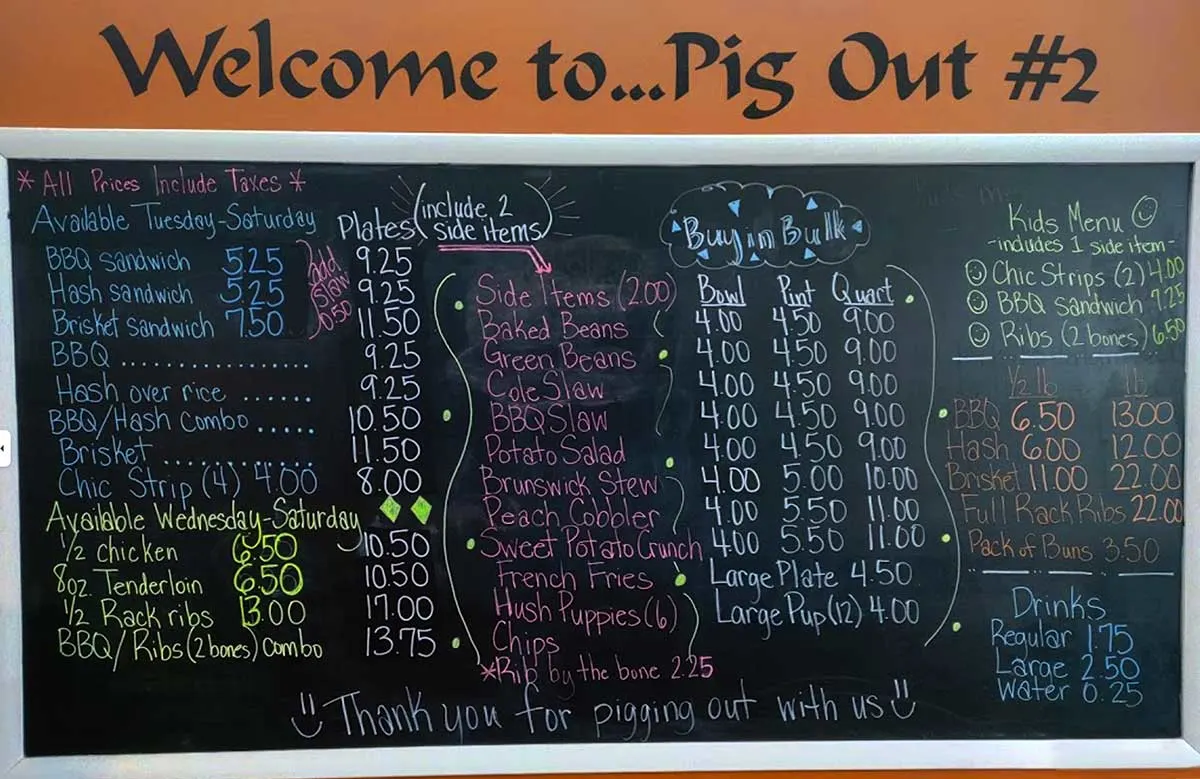 Welcome to...Pig Out #2
* All Prices Include Taxes *
Available Tuesday-Saturday Plates (include 2 side items)
BBQ sandwich 5.25 9.25
Hash sandwich 5.25 9.25
Brisket sandwich 7.50 11.50
add slaw 0.50
BBQ ................. 9.25
Hash over rice ...... 9.25
BBQ/Hash combo ..... 10.50
Brisket ............. 11.50
Chic Strip (4) 4.00 8.00
Available Wednesday-Saturday
1/2 chicken 6.50 10.50
8oz. Tenderloin 6.50 10.50
1/2 Rack ribs 13.00 17.00
BBQ/Ribs (2 bones) combo 13.75
Buy in Bulk
Side Items (2.00) Bowl Pint Quart
Baked Beans 4.00 4.50 9.00
Green Beans 4.00 4.50 9.00
Cole Slaw 4.00 4.50 9.00
BBQ Slaw 4.00 4.50 9.00
Potato Salad 4.00 4.50 9.00
Brunswick Stew 4.00 5.00 10.00
Peach Cobbler 4.00 5.50 11.00
Sweet Potato Crunch 4.00 5.50 11.00
French Fries Large Plate 4.50
Hush Puppies (6) Large Pup (12) 4.00
Chips
*Rib by the bone 2.25
Kids Menu
-includes 1 side item-
Chic Strips (2) 4.00
BBQ sandwich 7.25
Ribs (2 bones) 6.50
1/2 lb lb
BBQ 6.50 13.00
Hash 6.00 12.00
Brisket 11.00 22.00
Full Rack Ribs 22.00
Pack of Buns 3.50
Drinks
Regular 1.75
Large 2.50
Water 0.25
Thank you for pigging out with us